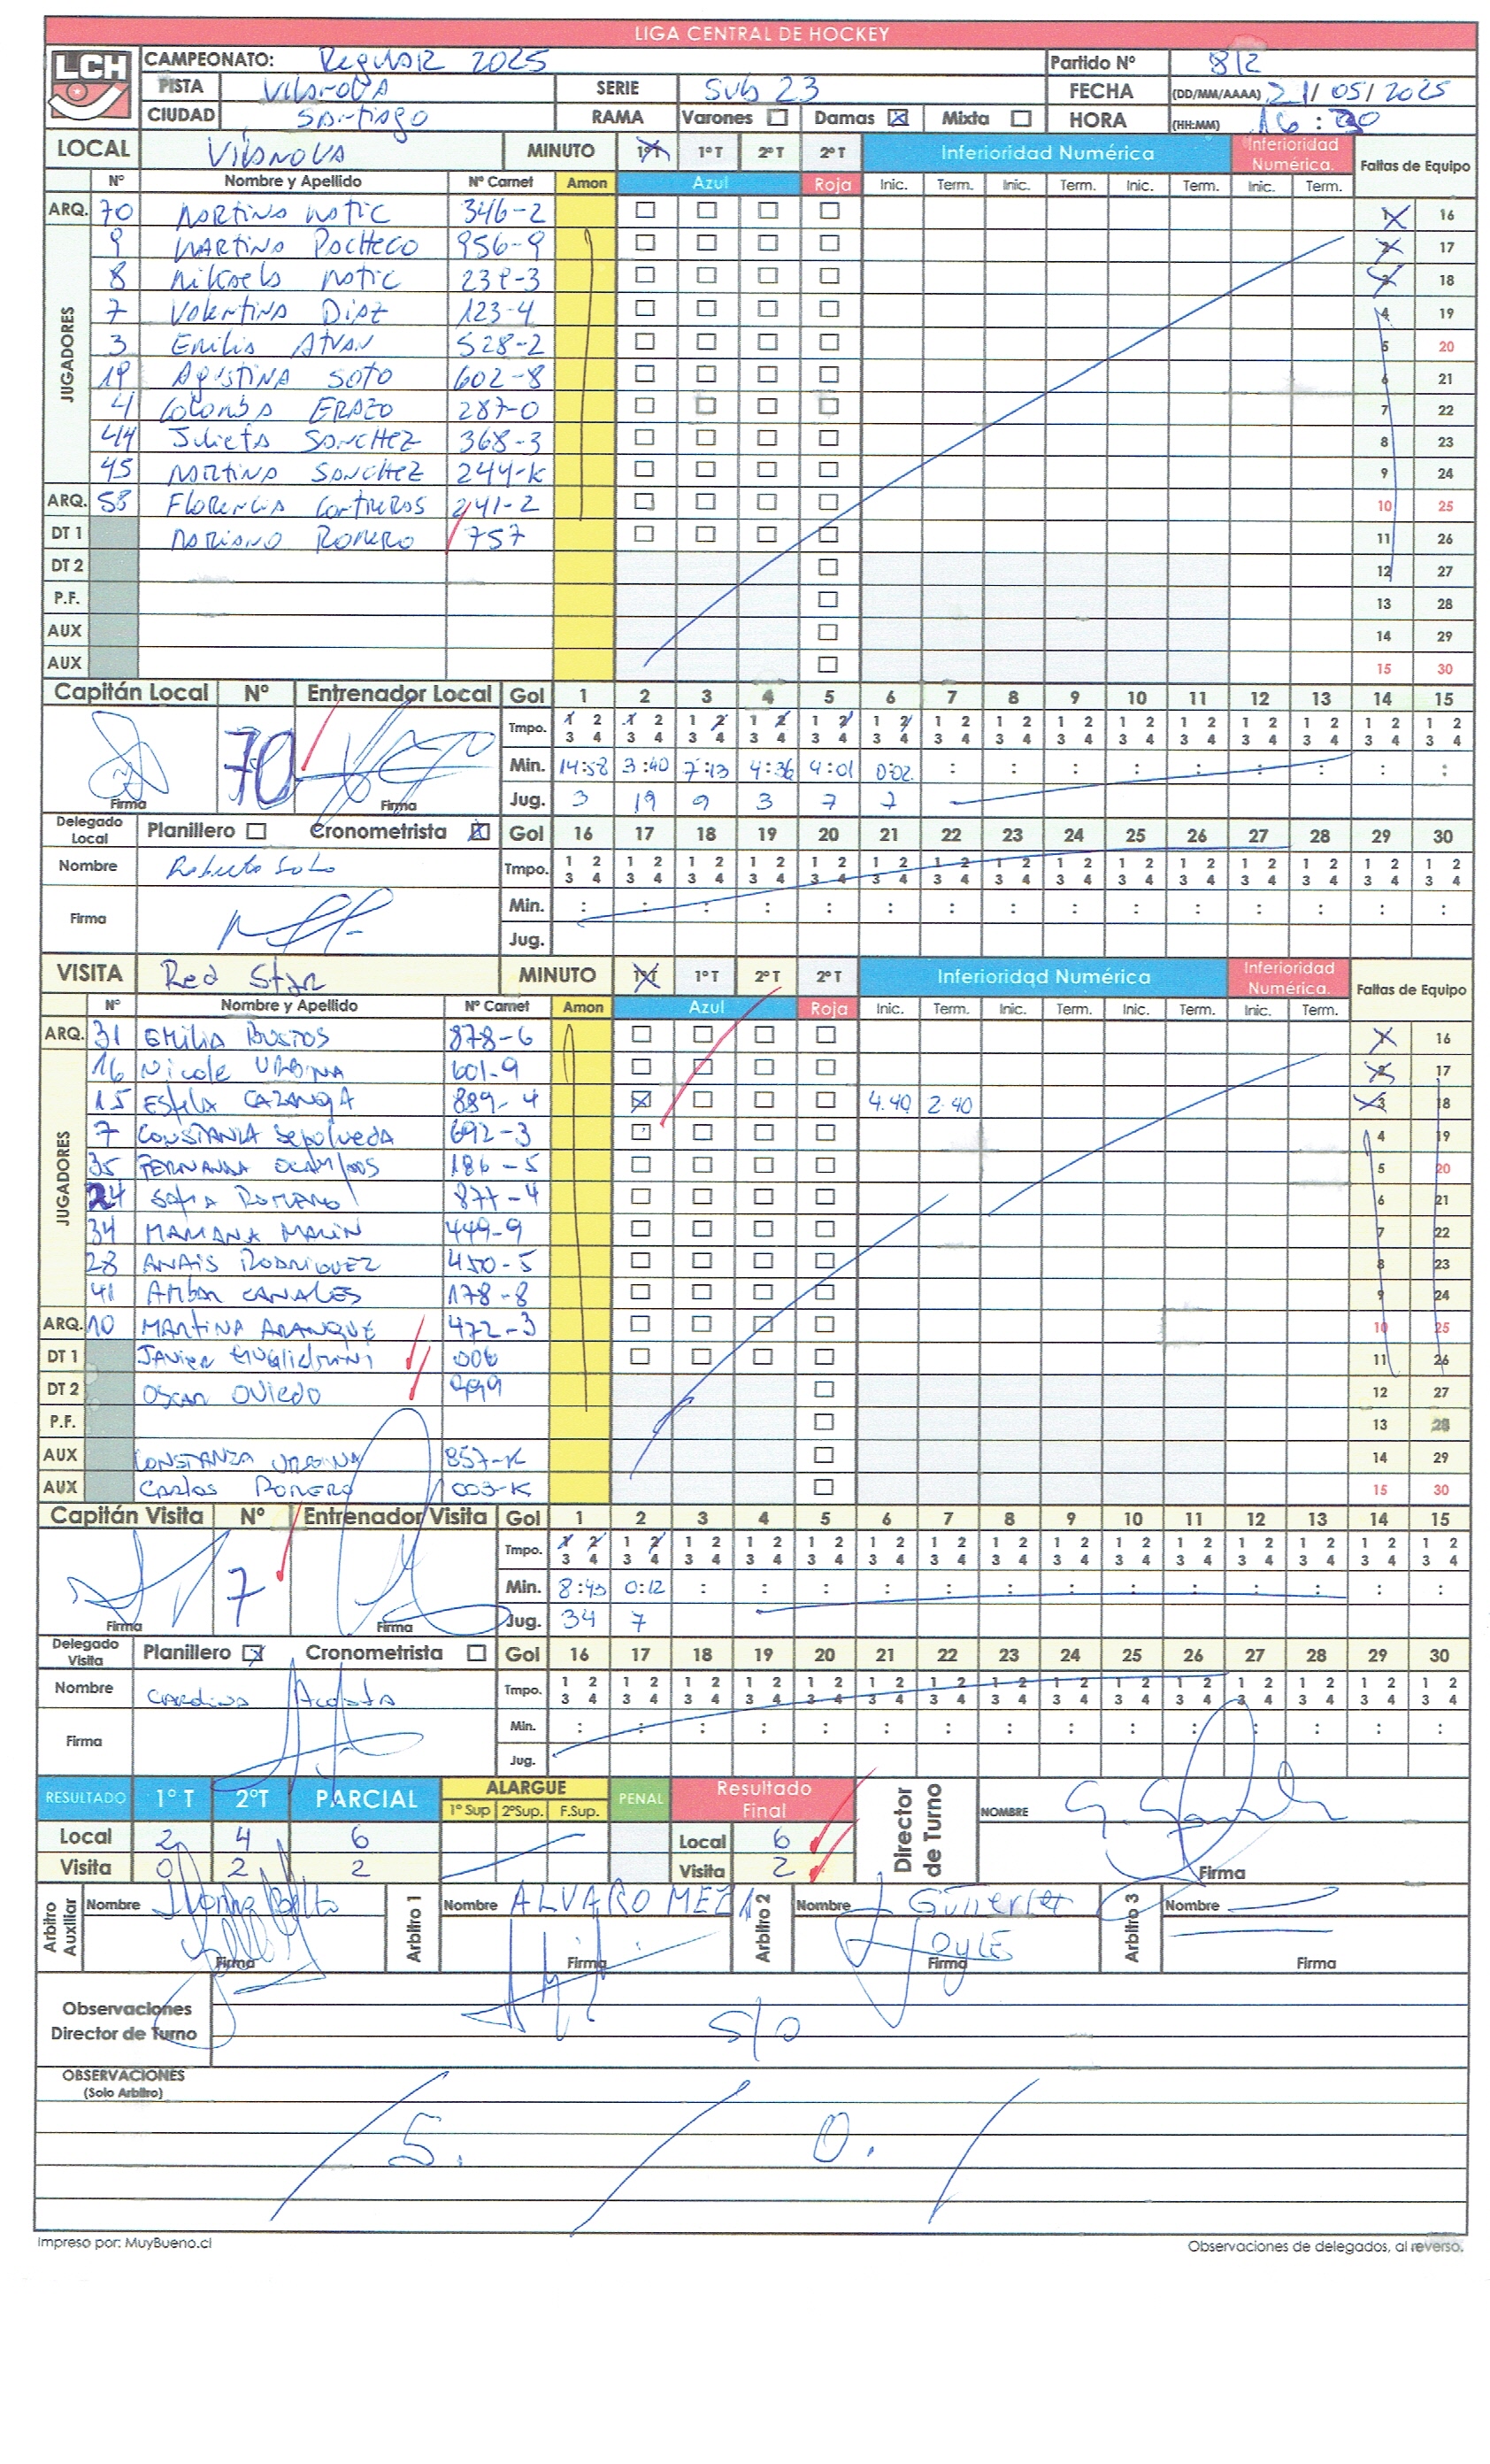 LIGA CENTRAL DE HOCKEY
LCH
CAMPEONATO: Regular 2025 Partido Nº 812
PISTA Vilanova SERIE Sub 23 FECHA (DD/MM/AAAA) 21/05/2025
CIUDAD Santiago RAMA Varones Damas Mixta HORA (HH:MM)
LOCAL Vilanova MINUTO 1ºT 1ºT 2ºT 2ºT Inferioridad Numérica Inferioridad Numérica. Faltas de Equipo
Nº Nombre y Apellido Nº Carnet Amon Azul Roja Inic. Term. Inic. Term. Inic. Term. Inic. Term.
ARQ. 70 Martina Matic 346-2 1 16
JUGADORES
9 Martina Pacheco 956-9 2 17
8 Mikaela Matic 238-3 3 18
7 Valentina Diaz 123-4 4 19
3 Emilia 528-2 5 20
19 Agustina Soto 602-8 6 21
4 Colomba Erazo 287-0 7 22
44 Julieta Sanchez 368-3 8 23
45 Martina Sanchez 244-K 9 24
ARQ. 58 Florencia Contreras 241-2 10 25
DT 1 Mariano Romero 757 11 26
DT 2 12 27
P.F. 13 28
AUX 14 29
AUX 15 30
Capitán Local Nº Entrenador Local Gol 1 2 3 4 5 6 7 8 9 10 11 12 13 14 15
Tmpo. 1 2 3 4 1 2 3 4 1 2 3 4 1 2 3 4 1 2 3 4 1 2 3 4 1 2 3 4 1 2 3 4 1 2 3 4 1 2 3 4 1 2 3 4 1 2 3 4 1 2 3 4 1 2 3 4 1 2 3 4
70 Min. 14:58 3:40 7:13 4:36 4:01 0:02 : : : : : : : : :
Firma Firma Jug. 3 19 9 3 7 7
Delegado Local Planillero Cronometrista Gol 16 17 18 19 20 21 22 23 24 25 26 27 28 29 30
Nombre Roberto Soto Tmpo. 1 2 3 4 1 2 3 4 1 2 3 4 1 2 3 4 1 2 3 4 1 2 3 4 1 2 3 4 1 2 3 4 1 2 3 4 1 2 3 4 1 2 3 4 1 2 3 4 1 2 3 4 1 2 3 4 1 2 3 4
Firma Min. : : : : : : : : : : : : : : :
Jug.
VISITA Red Star MINUTO 1ºT 1ºT 2ºT 2ºT Inferioridad Numérica Inferioridad Numérica. Faltas de Equipo
Nº Nombre y Apellido Nº Carnet Amon Azul Roja Inic. Term. Inic. Term. Inic. Term. Inic. Term.
ARQ. 31 Emilia Bustos 878-6 1 16
JUGADORES
16 Nicole Urbina 601-9 2 17
15 Estela 889-4 4.40 2.40 3 18
7 Constanza Sepulveda 692-3 4 19
35 Fernanda Ocampos 186-5 5 20
24 Sofia Romero 877-4 6 21
34 Mariana Marin 449-9 7 22
28 Anais Rodriguez 450-5 8 23
41 Ambar Canales 178-8 9 24
ARQ. 10 Martina 472-3 10 25
DT 1 Javier 006 11 26
DT 2 Oscar Oviedo 999 12 27
P.F. 13 28
AUX Constanza Urbina 857-K 14 29
AUX Carlos Romero 003-K 15 30
Capitán Visita Nº Entrenador Visita Gol 1 2 3 4 5 6 7 8 9 10 11 12 13 14 15
Tmpo. 1 2 3 4 1 2 3 4 1 2 3 4 1 2 3 4 1 2 3 4 1 2 3 4 1 2 3 4 1 2 3 4 1 2 3 4 1 2 3 4 1 2 3 4 1 2 3 4 1 2 3 4 1 2 3 4 1 2 3 4
7 Min. 8:43 0:12 : : : : : : : : : : : : :
Firma Firma Jug. 34 7
Delegado Visita Planillero Cronometrista Gol 16 17 18 19 20 21 22 23 24 25 26 27 28 29 30
Nombre Carolina Acosta Tmpo. 1 2 3 4 1 2 3 4 1 2 3 4 1 2 3 4 1 2 3 4 1 2 3 4 1 2 3 4 1 2 3 4 1 2 3 4 1 2 3 4 1 2 3 4 1 2 3 4 1 2 3 4 1 2 3 4 1 2 3 4
Firma Min. : : : : : : : : : : : : : : :
Jug.
RESULTADO 1ºT 2ºT PARCIAL ALARGUE 1º Sup 2ºSup. F.Sup. PENAL Resultado Final Director de Turno NOMBRE
Local 2 4 6 Local 6
Visita 0 2 2 Visita 2 Firma
Arbitro Auxiliar Nombre Arbitro 1 Nombre ALVARO MEZA Arbitro 2 Nombre J Gutierrez Arbitro 3 Nombre
Firma Firma Firma Firma
Observaciones Director de Turno S/O
OBSERVACIONES
(Solo Arbitro)
S. / O. /
Impreso por: MuyBueno.cl Observaciones de delegados, al reverso.